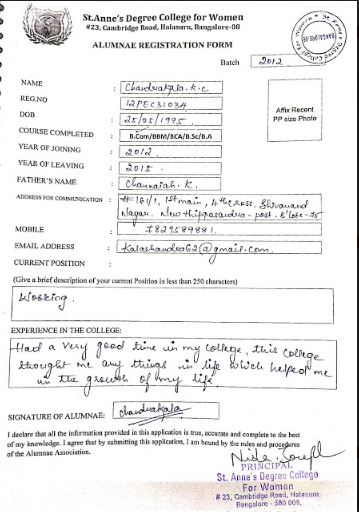 St.Anne's Degree College for Women
# 23, Cambridge Road, Halasuru, Bangalore-08
ALUMNAE REGISTRATION FORM
Batch 2012
NAME : Chandrakala.K.C
REG.NO : 12PEC31034
DOB : 25/05/1995
COURSE COMPLETED : B.Com/BBM/BCA/B.Sc/B.A
YEAR OF JOINING : 2012
YEAR OF LEAVING : 2015
FATHER'S NAME : Channaiah.K.
Affix Recent
PP size Photo
ADDRESS FOR COMMUNICATION : # 161/1, 1st main, 4th cross, Shivanand
Nagar. New thippasandra - post. B'lore - 75
MOBILE : 7829589881.
EMAIL ADDRESS : Kalachandra62@gmail.com.
CURRENT POSITION :
(Give a brief description of your current Position is less than 250 characters)
Working.
EXPERIENCE IN THE COLLEGE:
Had a very good time in my college, this college
thought me any things in life which helped me
in the growth of my life
SIGNATURE OF ALUMNAE: Chandrakala
I declare that all the information provided in this application is true, accurate and complete to the best
of my knowledge. I agree that by submitting this application, I am bound by the rules and procedures
of the Alumnae Association.
PRINCIPAL
St. Anne's Degree College
For Women
# 23, Cambridge Road, Halasuru,
Bangalore - 560 008.